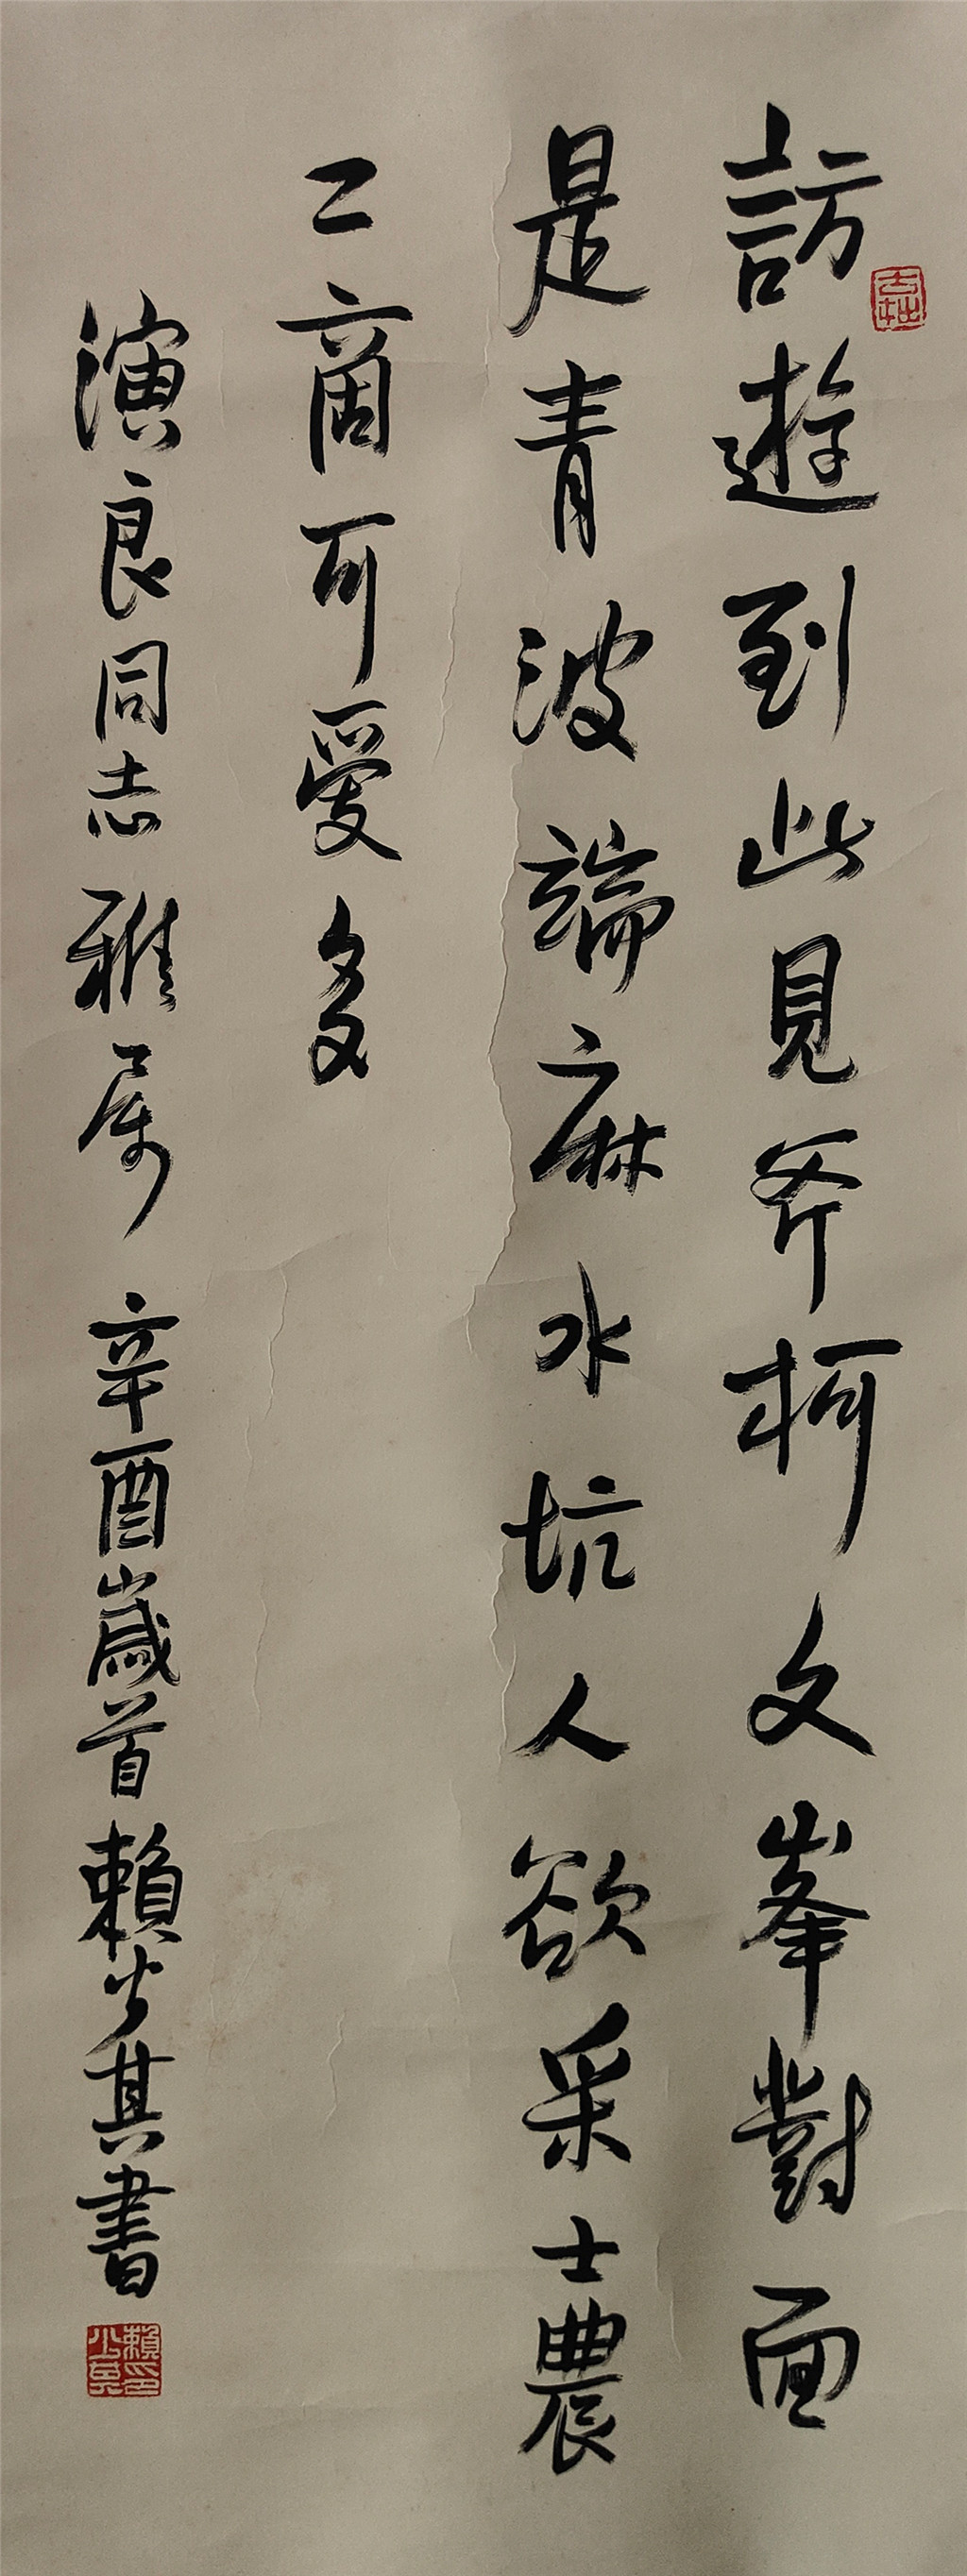 訪遊到此見斧柯文峯對面
是青波端麻水坑人欲采士農
工商可愛多
演良同志雅属 辛酉歲首賴少其書